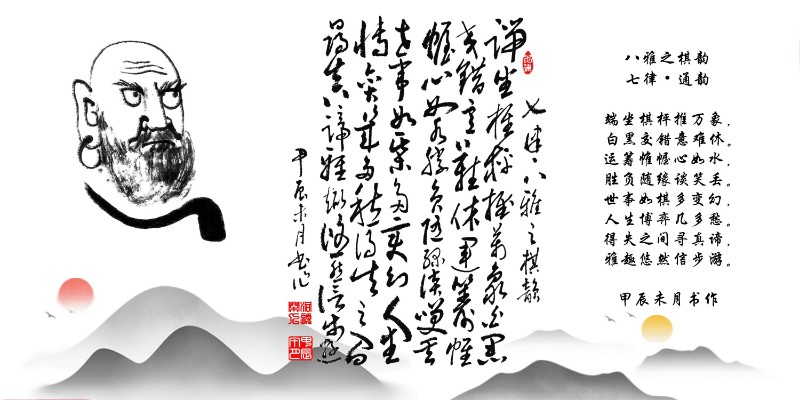 七律八雅之棋韵
端坐棋枰推万象白黑
交错意难休运筹帷
幄心如水胜负随缘谈笑丢
世事如棋多变幻人生
博弈几多愁得失之间
寻真谛雅趣悠然信步游
甲辰未月书作
八雅之棋韵
七律·通韵
端坐棋枰推万象，
白黑交错意难休。
运筹帷幄心如水，
胜负随缘谈笑丢。
世事如棋多变幻，
人生博弈几多愁。
得失之间寻真谛，
雅趣悠然信步游。
甲辰未月书作